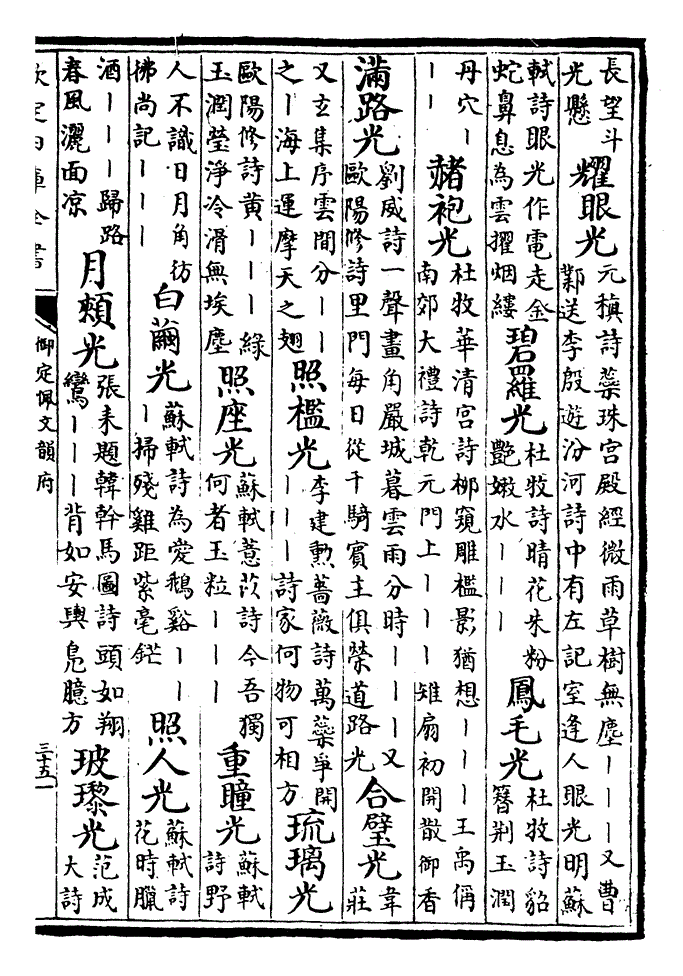 長望斗
光懸
耀眼光
元稹詩蘂珠宫殿經微雨草樹無塵丨丨丨又曹
鄴送李殷遊汾河詩中有左記室逢人眼光明蘇
軾詩眼光作電走金
蛇鼻息為雲擢烟縷
碧羅光
杜牧詩晴花朱粉
艷嫩水丨丨丨
鳳毛光
杜牧詩貂
簪荆玉潤
丹穴丨
丨丨
赭袍光
杜牧華清宫詩栁窺雕檻影猶想丨丨丨王禹偁
南郊大禮詩乾元門上丨丨丨雉扇初開散御香
滿路光
劉威詩一聲畫角嚴城暮雲雨分時丨丨丨又
歐陽修詩里門每日從千騎賓主俱榮道路光
合璧光
韋
莊
又玄集序雲間分丨丨
之丨海上運摩天之翅
照檻光
李建勲薔薇詩萬蘂爭開
丨丨丨詩家何物可相方
琉璃光
歐陽修詩黄丨丨丨緑
玉潤瑩淨冷滑無埃塵
照座光
蘇軾薏苡詩今吾獨
何者玉粒丨丨丨
重瞳光
蘇軾
詩野
人不識日月角彷
彿尚記丨丨丨
白繭光
蘇軾詩為愛鵝谿丨丨
丨掃殘雞距紫毫鋩
照人光
蘇軾詩
花時臘
酒丨丨丨歸路
春風灑面凉
月頰光
張耒題韓幹馬圖詩頭如翔
鸞丨丨丨背如安輿鳬臆方
玻瓈光
范成
大詩
欽定四庫全書
御定佩文韻府
三十五